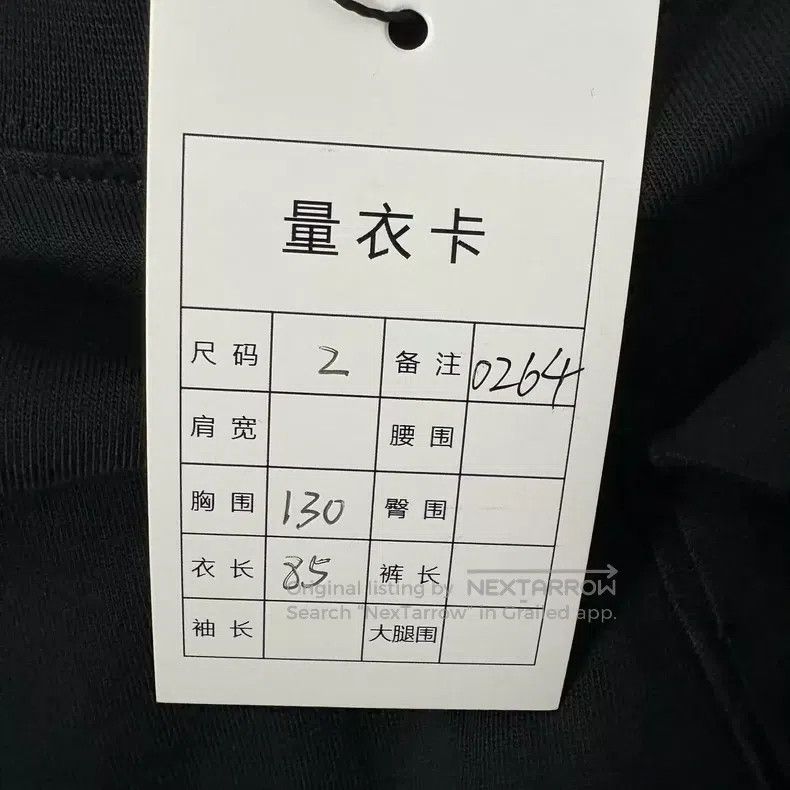 量衣卡
尺码 2 备注 0264
肩宽 腰围
胸围 130 臀围
衣长 85 裤长
袖长 大腿围
Original listing by NEXTARROW
Search "NexTarrow" in Grailed app.